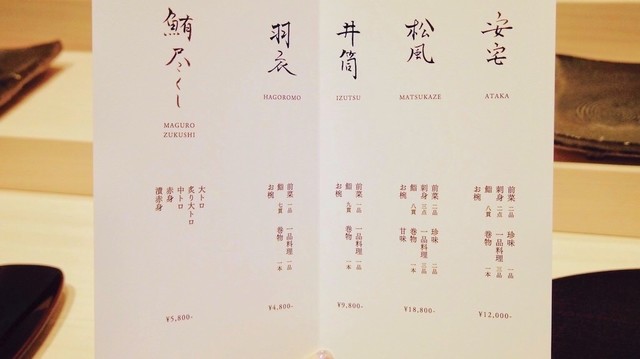 安宅
ATAKA
前菜 二品 珍味 一品
刺身 二点 一品料理 三品
鮨 八貫 巻物 一本
お椀
¥12,000-
松風
MATSUKAZE
前菜 二品 珍味 二品
刺身 三点 一品料理 三品
鮨 八貫 巻物 一本
お椀 甘味
¥18,800-
井筒
IZUTSU
前菜 一品 一品料理 一品
鮨 九貫 巻物 一本
お椀
¥9,800-
羽衣
HAGOROMO
前菜 一品 一品料理 一品
鮨 七貫 巻物 一本
お椀
¥4,800-
鮪尽くし
MAGURO
ZUKUSHI
大トロ
炙り大トロ
中トロ
赤身
漬赤身
¥5,800-